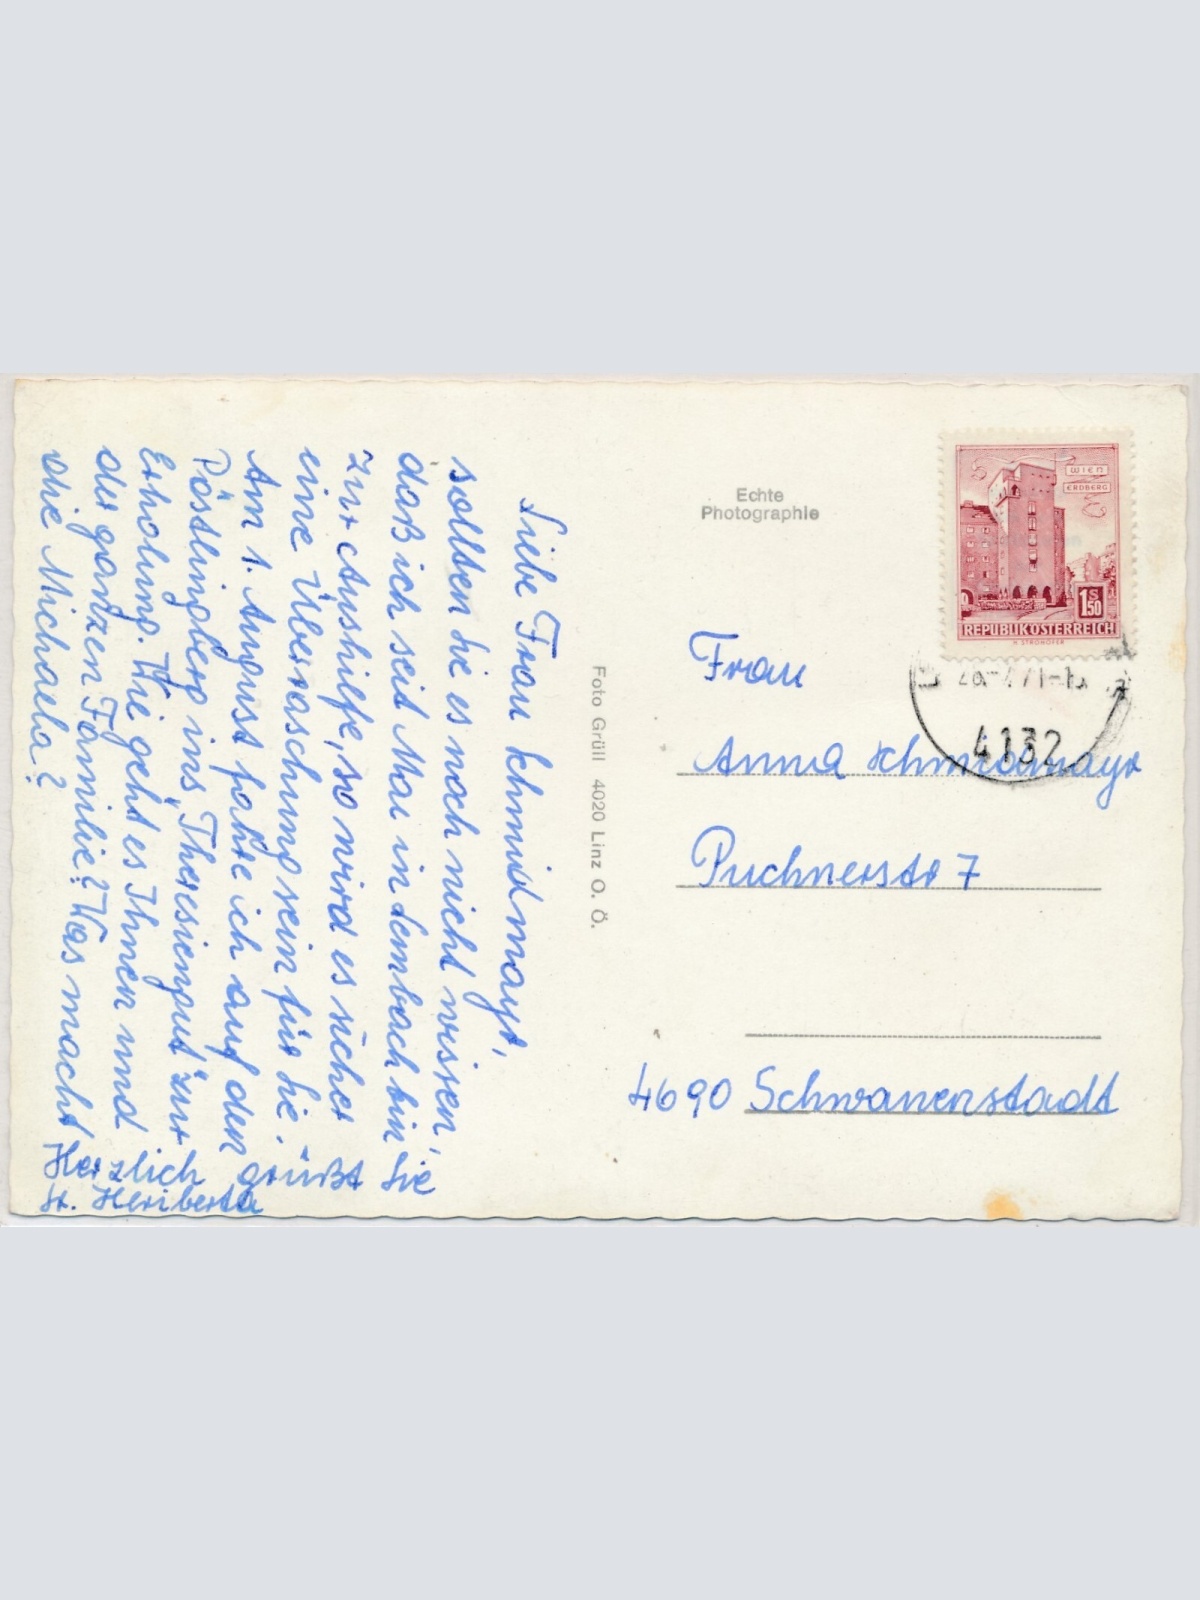 Liebe Frau Schmidmayr,
sollten Sie es noch nicht wissen,
daß ich seit Mai in Lembach bin
zur Aushilfe, so wird es sicher
eine Überraschung sein für Sie.
Am 1. August fahre ich auf den
Pöstlingberg ins „Theresiengut" zur
Erholung. Wie geht es Ihnen und
der ganzen Familie? Was macht
die Michaela?
Herzlich grüßt Sie
Sr. Heriberta
Foto Grüll 4020 Linz O. Ö.
Echte
Photographie
WIEN
ERDBERG
1 S 50
REPUBLIK ÖSTERREICH
H. STROHOFER
4132
Frau
Anna Schmidmayr
Puchnerstr 7
4690 Schwanenstadt